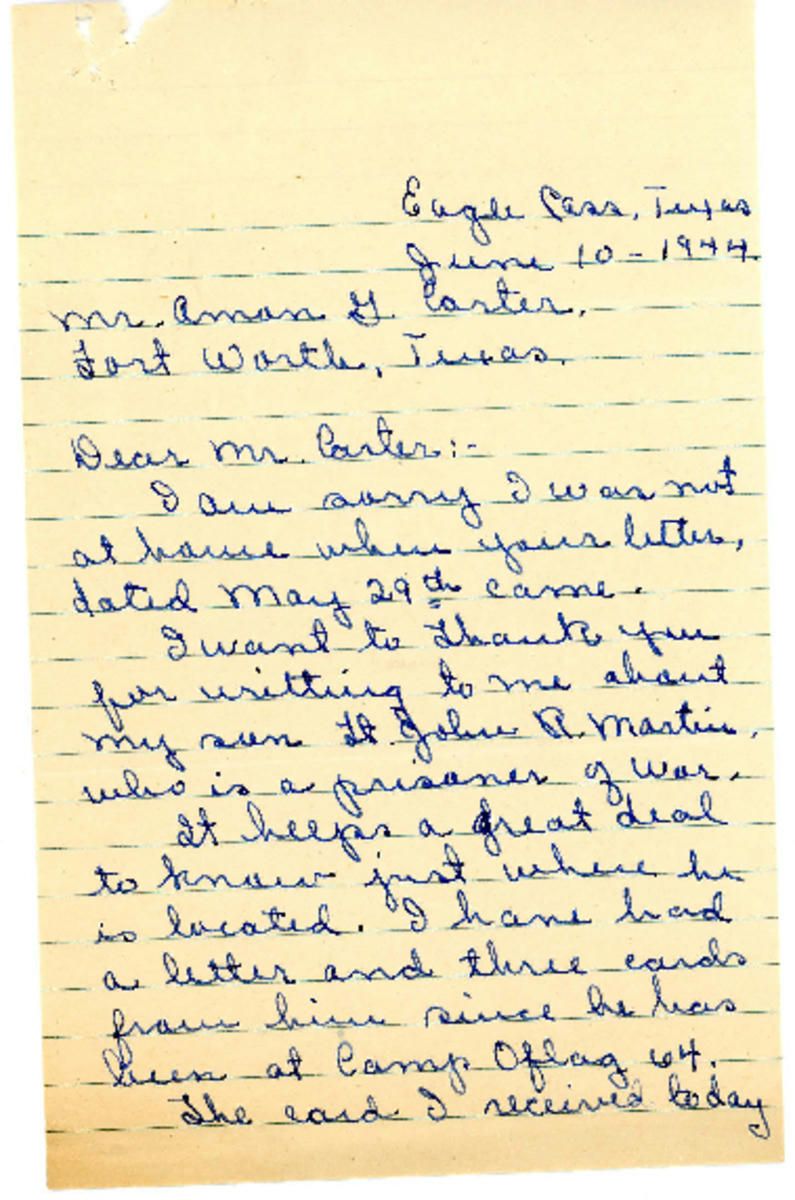 Eagle Pass, Texas
June 10 - 1944.
Mr. Amon G. Carter,
Fort Worth, Texas.
Dear Mr. Carter:-
I am sorry I was not
at home when your letter,
dated May 29th came.
I want to thank you
for writting to me about
my son Lt. John R. Martin,
who is a prisoner of war.
It helps a great deal
to know just where he
is located. I have had
a letter and three cards
from him since he has
been at Camp Oflag 64.
The card I received today